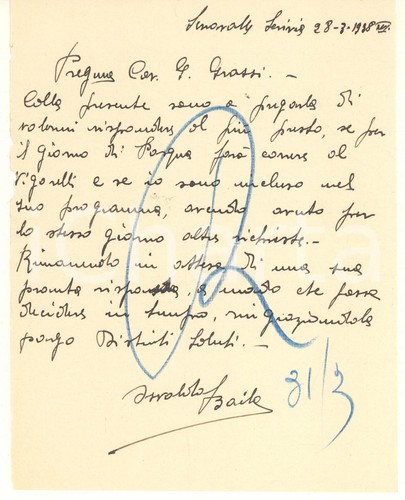 Serravalle Scrivia 28-3-1938 XVI.
Pregmo Cav. G. Grassi. —
Colla presente sono a pregarla di
volermi rispondere al più presto, se per
il giorno di Pasqua farà corsa al
Vigorelli e se io sono incluso nel
suo programma, avendo avuto per
lo stesso giorno altre richieste. —
Rimanendo in attesa di una sua
pronta risposta a modo che possa
decidere in tempo, ringraziandola
porgo Distinti Saluti. —
Osvaldo Bailo
31/3